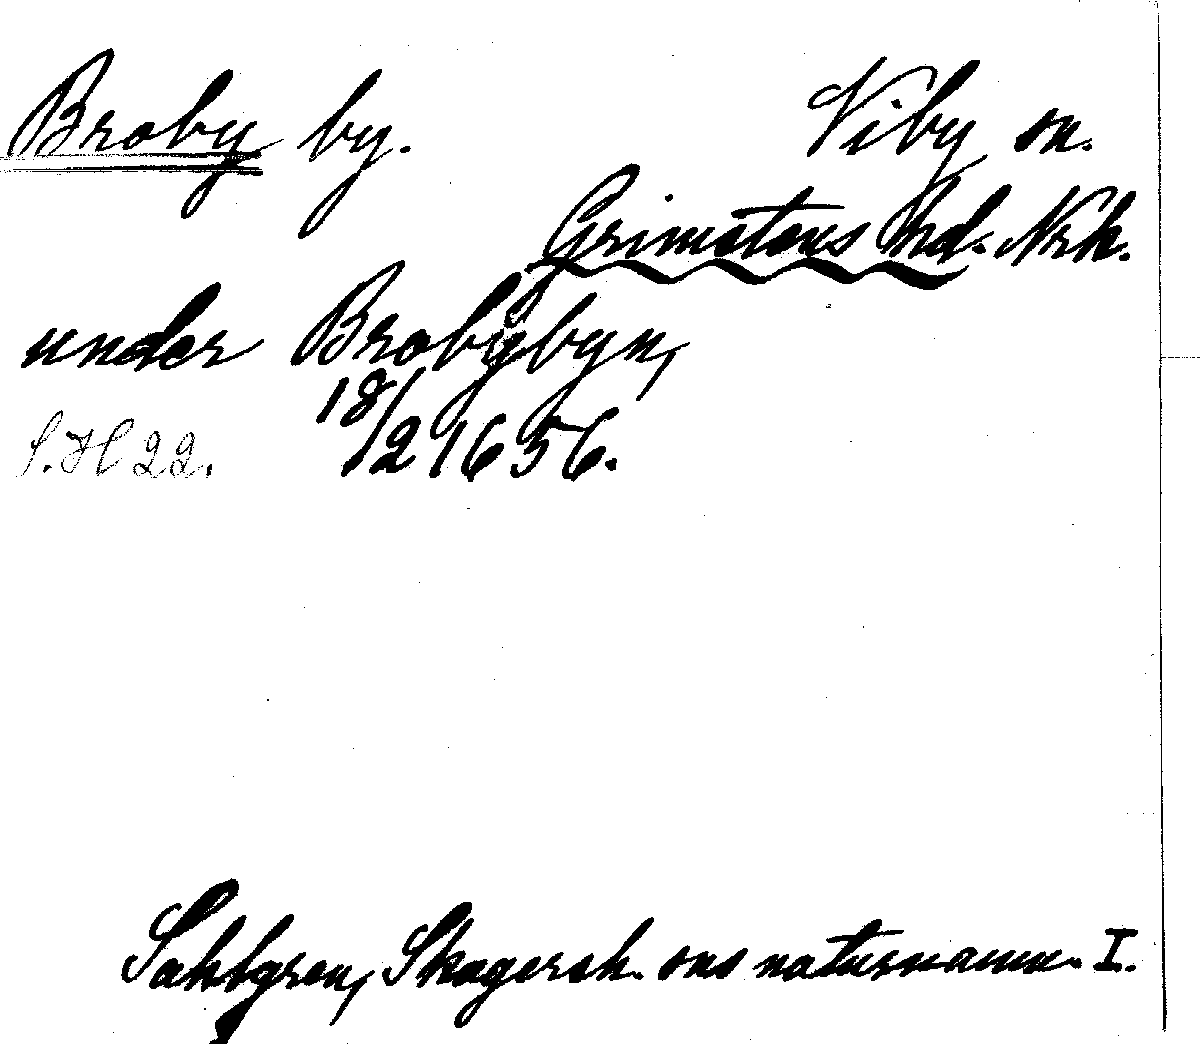 Broby by. Viby sn.
Grimstens hd. Nrk.
under Brobybyn,
18/2 1656.
S. H 22.
Sahlgren, Skagersh. sns naturnamn. I.